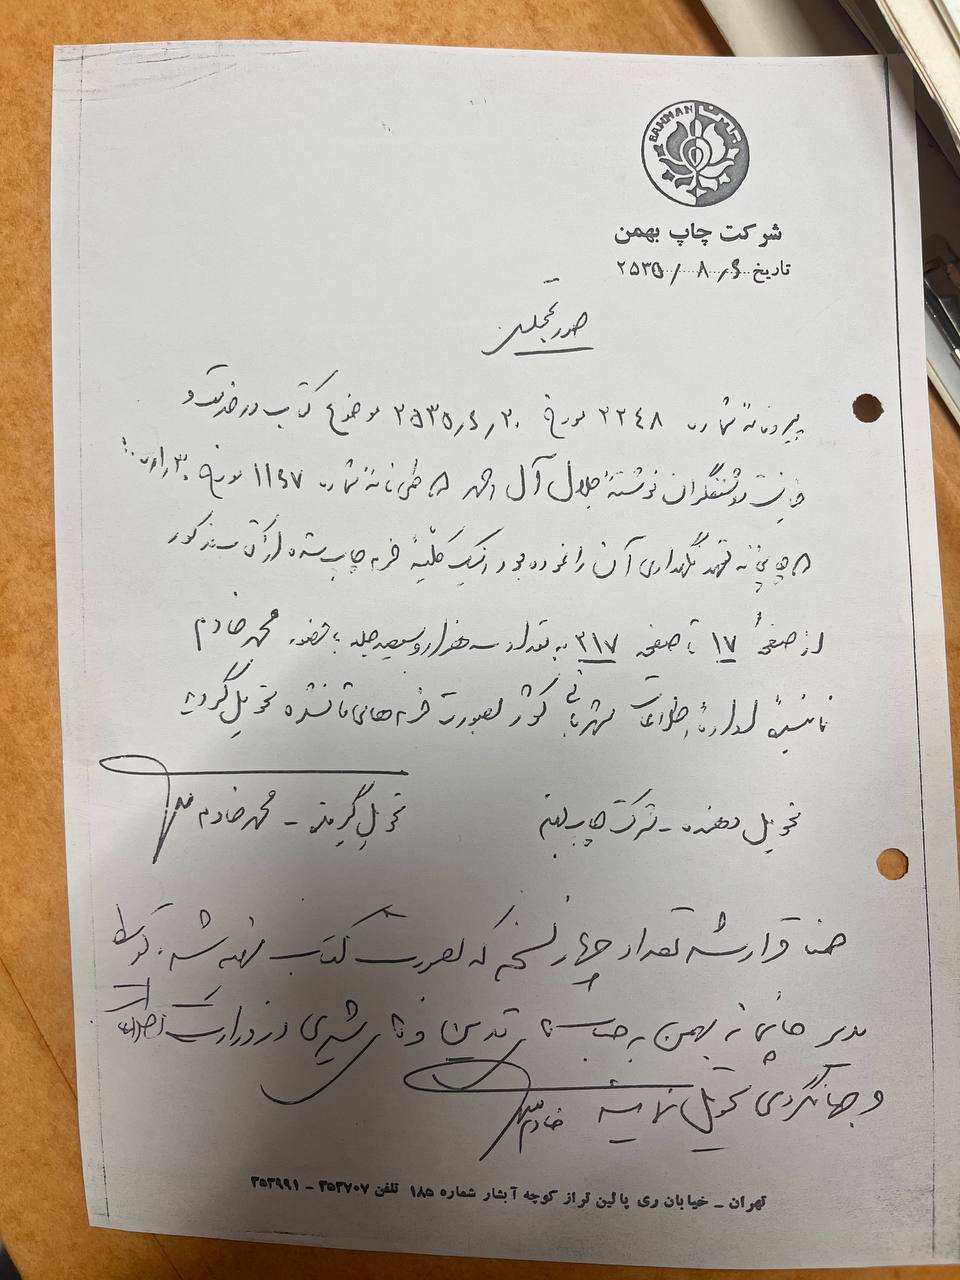 BAHMAN بهمن
شرکت چاپ بهمن
تاریخ ۲۵۳۵/۸/۶
صورتمجلس
پیرو نامهٔ شماره ۲۲۴۸ مورخ ۲۵۳۵/۶/۲۰ موضوع کتاب در خدمت و
خیانت روشنفکران نوشتهٔ جلال آل احمد که طی نامه شماره ۱۱۴۷ مورخ
که چاپخانه تعهد نگهداری آن را نموده بود اینک کلیهٔ فرم چاپ شده از کتاب مذکور
از صفحهٔ ۱۷ تا صفحه ۳۱۷ به تعداد سه هزار و سیصد جلد با حضور محمد خادم
نمایندهٔ ادارهٔ اطلاعات شهربانی کشور بصورت فرم‌های تا نشده تحویل گردید
تحویل دهنده - شرکت چاپ بهمن
تحویل گیرنده - محمد خادم
ضمنا قرار شد تعداد چهار نسخه که بصورت کتاب تهیه شده توسط
مدیر چاپخانه بهمن به جناب آقای شیری در وزارت اطلاعات
و جهانگردی تحویل نمایند خادم
تهران - خیابان ری پائین تراز کوچه آبشار شماره ۱۸۵ تلفن ۳۵۲۷۰۷ - ۳۵۲۹۹۱